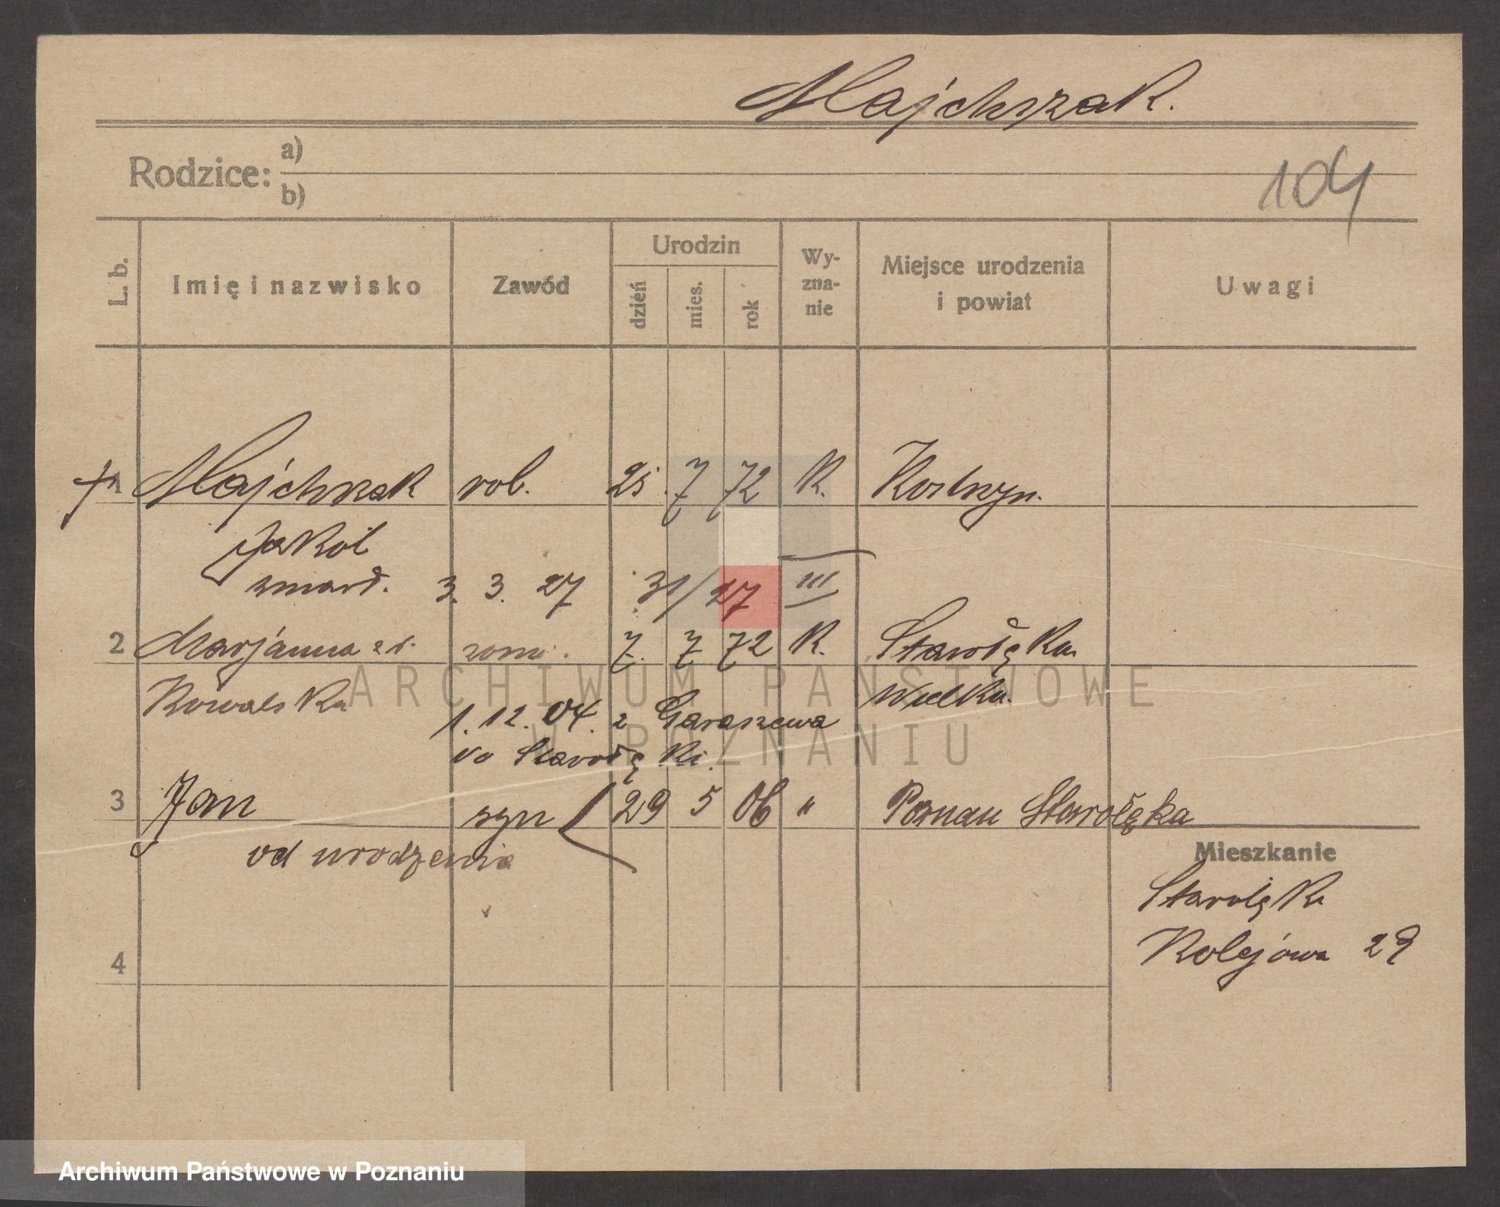 Majchrzak.
Rodzice: a)
b)
104
L. b. Imię i nazwisko Zawód Urodzin dzień mies. rok Wy-zna-nie Miejsce urodzenia i powiat Uwagi
† 1 Majchrzak rob. 25. 7 72 K. Kostrzyn.
Jakób
zmarł. 3. 3. 27 31/27 III
2 Marjanna z d. żona. 7. 7 72 K. Starołęka
Kowalska Wielka.
1. 12. 04. z Garaszewa
do Starołęki.
3 Jan syn 29 5 06 " Poznań Starołęka
od urodzenia
Mieszkanie
Starołęka
Kolejowa 29
4
ARCHIWUM PAŃSTWOWE
W POZNANIU
Archiwum Państwowe w Poznaniu